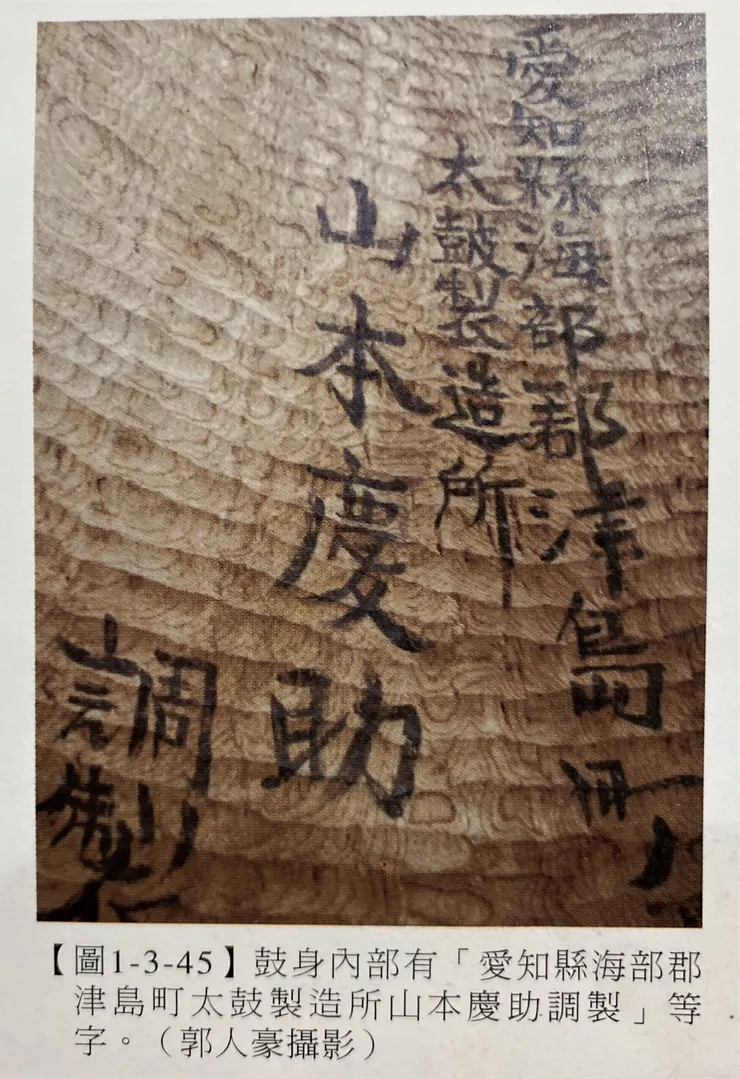 愛知縣海部郡津島町
太鼓製造所
山本慶助
調製
【圖1-3-45】鼓身內部有「愛知縣海部郡
津島町太鼓製造所山本慶助調製」等
字。（郭人豪攝影）